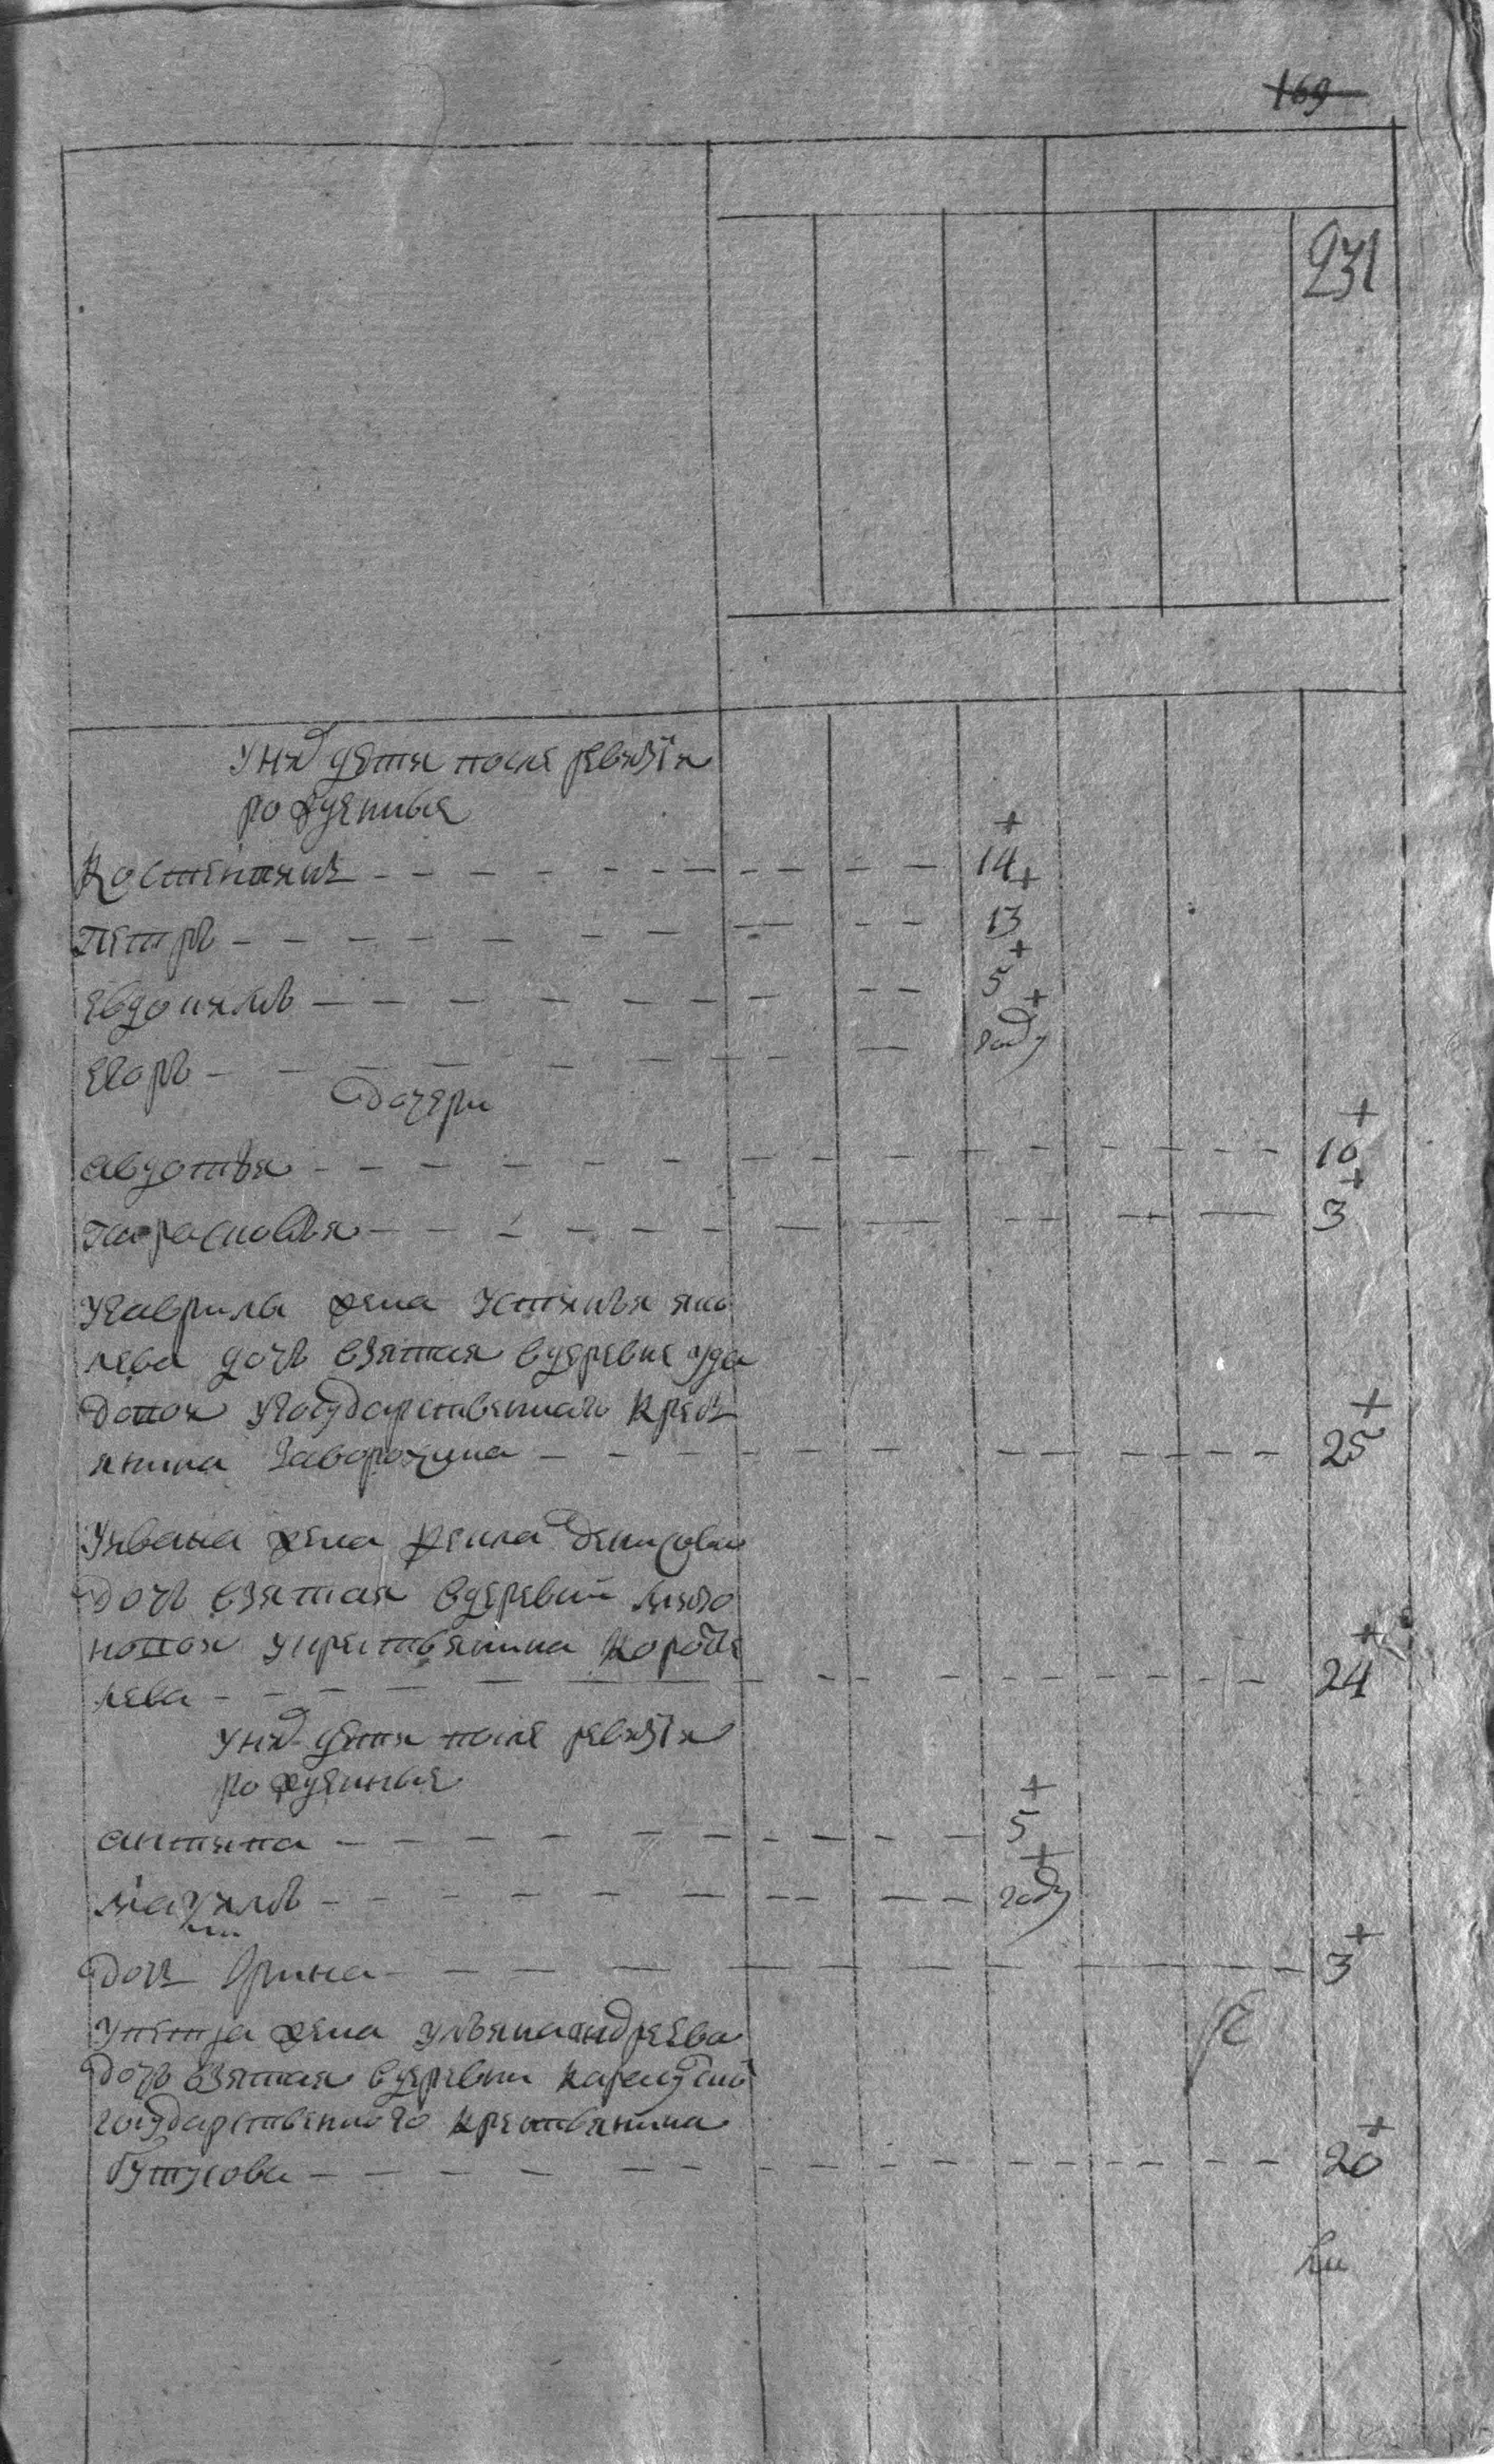 169
231
у них дети после ревизiи
рожденные
Костентинъ 14
Петръ 13
Евдокимъ 5
Егоръ году
Дочери
авдотья 16
парасковья 3
У гаврилы жена устинья яков
лева дочь взятая в деревне
у государственнаго крест
янина Заворохина 25
У ивана жена Денисова
дочь взятая в деревни
у крестьянина Короле
лева 24
у них дети после ревизiи
рожденные
антипа 5
году
дочь Орина 3
У петра жена ульяна андреева
дочь взятая в деревни
государственнаго крестьянина
Бутусова 20